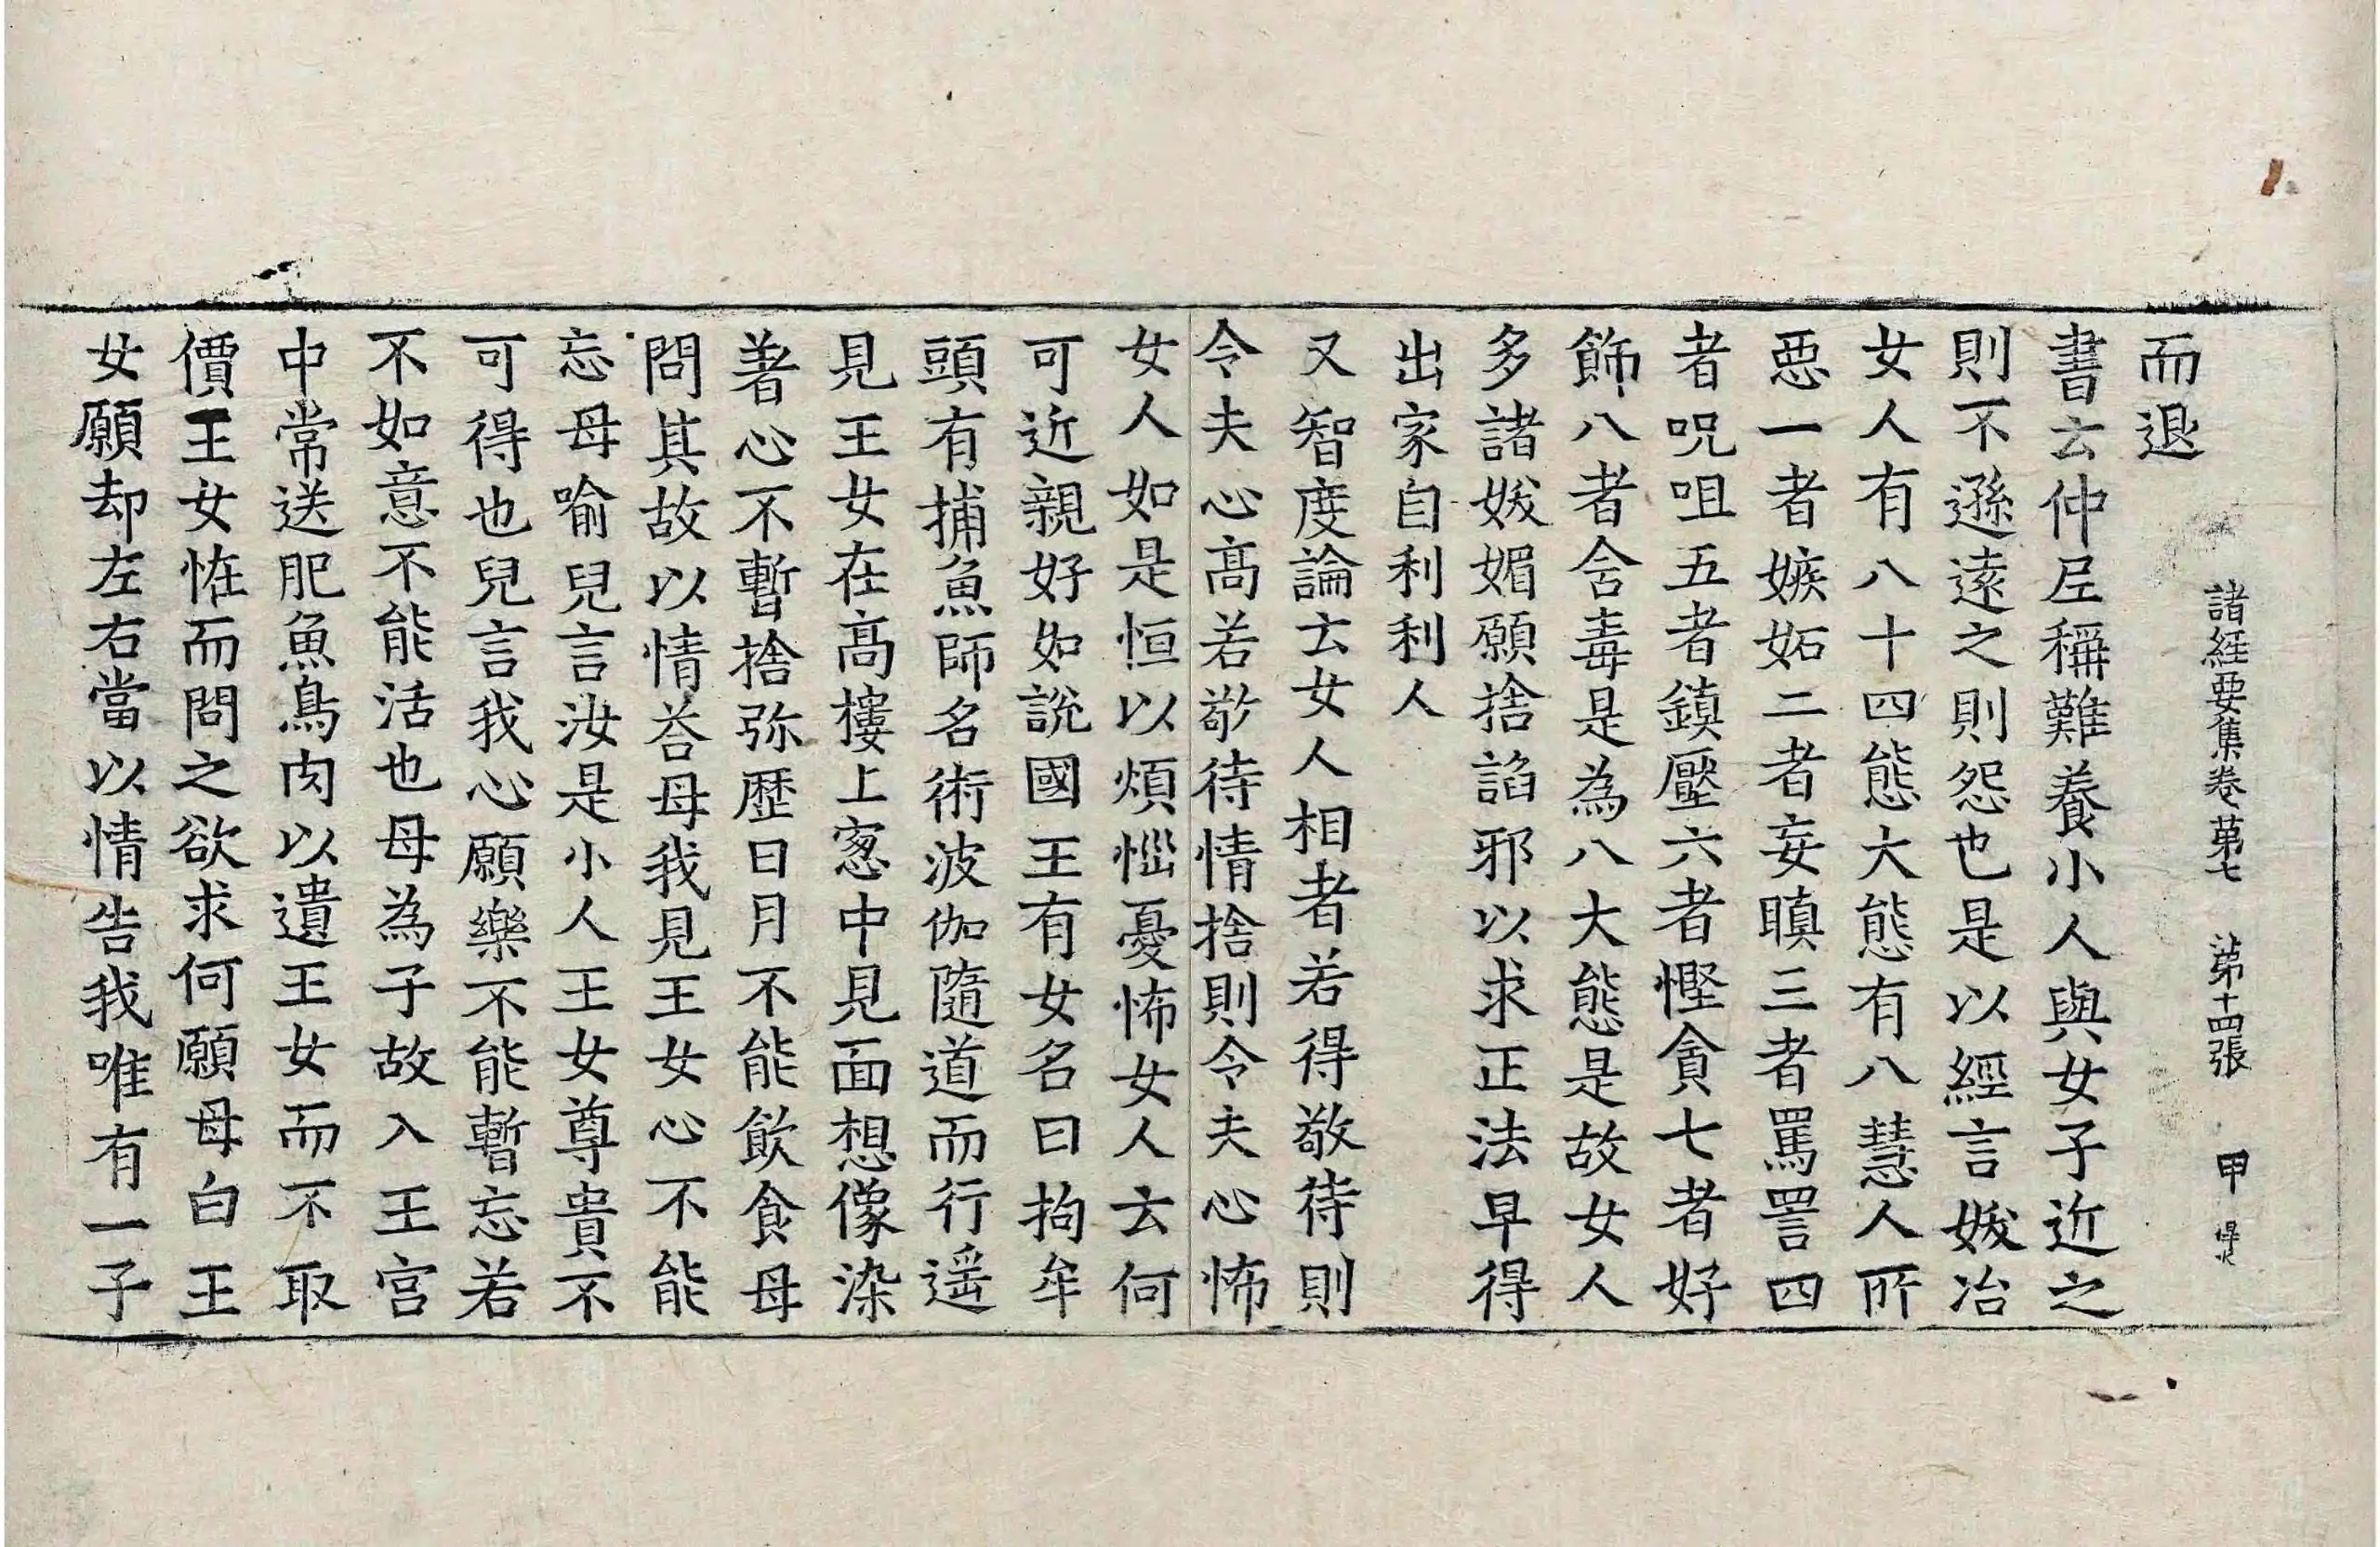 諸經要集卷第七 第十四張 甲
而退
書云仲尼稱難養小人與女子近之
則不遜遠之則怨也是以經言妭冶
女人有八十四態大態有八慧人所
惡一者嫉妬二者妄瞋三者罵詈四
者呪咀五者鎮壓六者慳貪七者好
飾八者含毒是為八大態是故女人
多諸妭媚願捨諂邪以求正法早得
出家自利利人
又智度論云女人相者若得敬待則
令夫心髙若敬待情捨則令夫心怖
女人如是恒以煩惱憂怖女人云何
可近親好如說國王有女名曰拘牟
頭有捕魚師名術波伽隨道而行遥
見王女在髙樓上窓中見面想像染
著心不暫捨弥歷日月不能飲食母
問其故以情荅母我見王女心不能
忘母喻兒言汝是小人王女尊貴不
可得也兒言我心願樂不能暫忘若
不如意不能活也母為子故入王宫
中常送肥魚鳥肉以遺王女而不取
價王女恠而問之欲求何願母白王
女願却左右當以情告我唯有一子